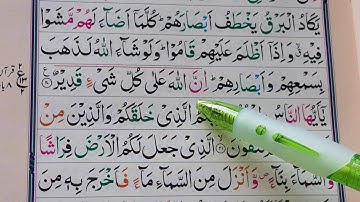 يَكَادُ الْبَرْقُ يَخْطَفُ اَبْصَارَهُمْ ؕ كُلَّمَاۤ اَضَآءَ لَهُمْ مَّشَوْا
فِيْهِ ۙ وَاِذَاۤ اَظْلَمَ عَلَيْهِمْ قَامُوْا ؕ وَلَوْ شَآءَ اللّٰهُ لَذَهَبَ
بِسَمْعِهِمْ وَاَبْصَارِهِمْ ؕ اِنَّ اللّٰهَ عَلٰى كُلِّ شَيْءٍ قَدِيْرٌ
يٰۤاَيُّهَا النَّاسُ الَّذِيْ خَلَقَكُمْ وَالَّذِيْنَ مِنْ
تَتَّقُوْنَ الَّذِيْ جَعَلَ لَكُمُ الْاَرْضَ فِرَاشًا
وَّالسَّمَآءَ بِنَآءً ۪ وَّاَنْزَلَ مِنَ السَّمَآءِ مَآءً فَاَخْرَجَ بِهٖ مِنَ